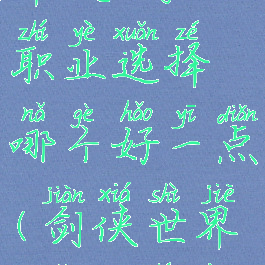 zhí yè xuǎn zé
职业选择
nǎ gè hǎo yī diǎn
哪个好一点
jiàn xiá shì jiè
(剑侠世界